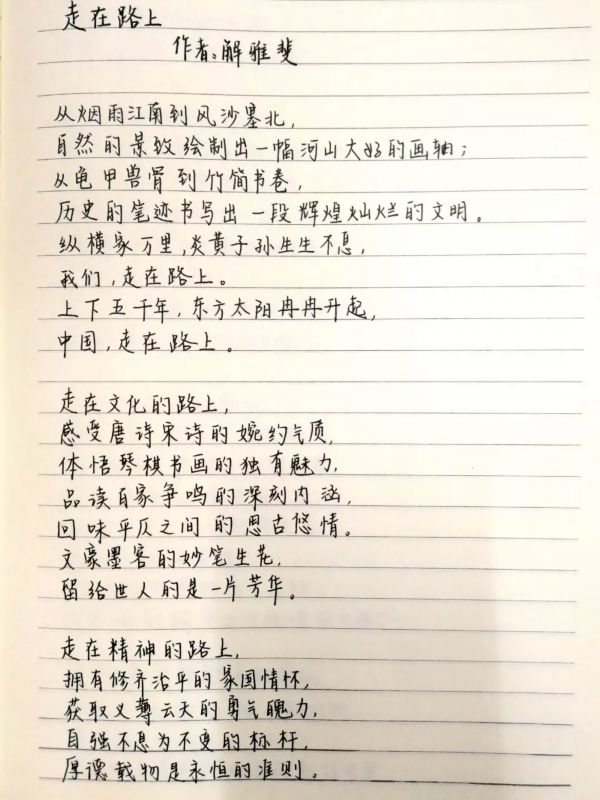 走在路上
作者：解雅斐
从烟雨江南到风沙塞北，
自然的景致绘制出一幅河山大好的画轴；
从龟甲兽骨到竹简书卷，
历史的笔迹书写出一段辉煌灿烂的文明。
纵横家万里，炎黄子孙生生不息，
我们，走在路上。
上下五千年，东方太阳冉冉升起，
中国，走在路上。
走在文化的路上，
感受唐诗宋诗的婉约气质，
体悟琴棋书画的独有魅力，
品读百家争鸣的深刻内涵，
回味平仄之间的思古悠情。
文豪墨客的妙笔生花，
留给世人的是一片芳华。
走在精神的路上，
拥有修齐治平的家国情怀，
获取义薄云天的勇气魄力，
自强不息为不变的标杆，
厚德载物是永恒的准则。